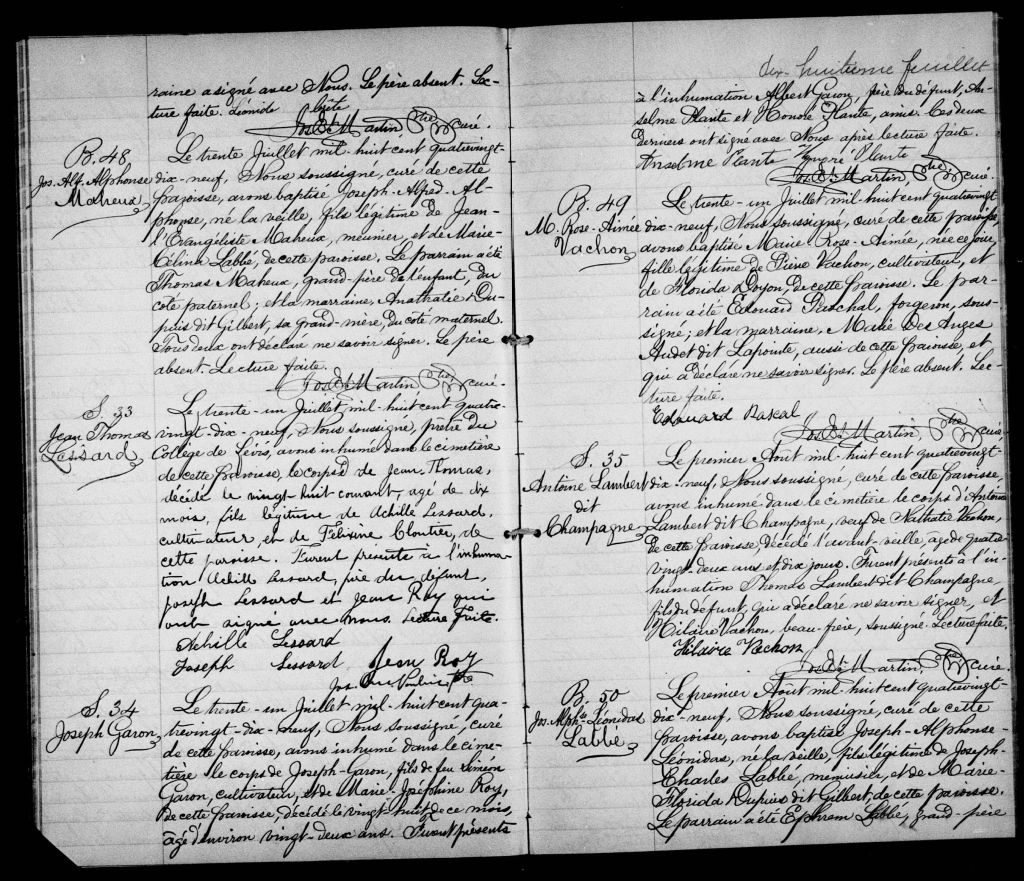 raine a signé avec Nous. Le père absent. Lec-
ture faite. Léonide
Jos. Et. Martin Ptre curé.
B. 48
Jos. Alf. Alphonse
Maheux
Le trente Juillet mil-huit cent quatrevingt-
dix-neuf, Nous soussigné, curé de cette
paroisse, avons baptisé Joseph-Alfred-Al-
phonse, né la veille, fils légitime de Jean-
l'Evangéliste Maheux, meunier, et de Marie-
Célina Labbé, de cette paroisse. Le parrain a été
Thomas Maheux, grand-père de l'enfant, du
côté paternel; et la marraine, Anathalie Du-
puis dit Gilbert, sa grand-mère, du côté maternel.
Tous deux ont déclaré ne savoir signer. Le père
absent. Lecture faite.
Jos. Et. Martin Ptre curé.
S. 33
Jean Thomas
Lessard
Le trente-un Juillet mil-huit cent quatre-
vingt-dix-neuf, Nous soussigné, prêtre du
Collège de Lévis, avons inhumé dans le cimetière
de cette paroisse, le corps de Jean Thomas,
décédé le vingt-huit courant, agé de dix
mois, fils légitime de Achille Lessard,
cultivateur, et de Félixine Cloutier, de
cette paroisse. Furent présents à l'inhuma-
tion Achille Lessard, père du défunt,
Joseph Lessard et Jean Roy qui
ont signé avec nous. Lecture faite.
Achille Lessard
Joseph Lessard Jean Roy
Jos. Ptre
S. 34
Joseph Garon
Le trente-un Juillet mil-huit cent qua-
trevingt-dix-neuf, Nous soussigné, curé
de cette paroisse, avons inhumé dans le cime-
tière le corps de Joseph-Garon, fils de feu Siméon
Garon, cultivateur, et de Marie-Joséphine Roy,
de cette paroisse, décédé le vingt-huit de ce mois,
âgé d'environ vingt-deux ans. Furent présents
dix-huitième feuillet
à l'inhumation Albert Garon, frère du défunt, An-
selme Plante et Honoré Plante, amis. Ces deux
derniers ont signé avec Nous après lecture faite.
Anselme Plante Honoré Plante
Jos. Et. Martin Ptre curé.
B. 49
M. Rose-Aimée
Vachon
Le trente-un Juillet mil-huit cent quatrevingt
dix-neuf, Nous soussigné, curé de cette paroisse,
avons baptisé Marie Rose-Aimée, née ce jour,
fille légitime de Pierre Vachon, cultivateur, et
de Florida Doyon, de cette paroisse. Le par-
rain a été Edouard Paschal, forgeron, sous-
signé; et la marraine, Marie Des Anges
Audet dit Lapointe, aussi de cette paroisse, et
qui a déclaré ne savoir signer. Le père absent. Lec-
ture faite.
Edouard Pascal
Jos. Et. Martin, Ptre curé,
S. 35
Antoine Lambert
dit
Champagne
Le premier Août mil-huit cent quatrevingt
dix-neuf, Nous soussigné, curé de cette paroisse,
avons inhumé dans le cimetière le corps d'Antoine
Lambert dit Champagne, veuf de Nathalie Vachon,
de cette paroisse, décédé l'avant-veille, agé de quatre-
vingt-deux ans et dix jours. Furent présents à l'in-
humation Thomas Lambert dit Champagne,
fils du défunt, qui a déclaré ne savoir signer, et
Hilaire Vachon, beau-frère, soussigné. Lecture faite.
Hilaire Vachon
Jos. Et. Martin, Ptre curé.
B. 50
Jos. Alphse Léonidas
Labbé
Le premier Août mil-huit cent quatrevingt-
dix-neuf, Nous soussigné, curé de cette
paroisse, avons baptisé Joseph-Alphonse-
Léonidas, né la veille, fils légitime de Joseph-
Charles Labbé, menuisier, et de Marie-
Florida Dupuis dit Gilbert, de cette paroisse.
Le parrain a été Ephrem Labbé, grand-père